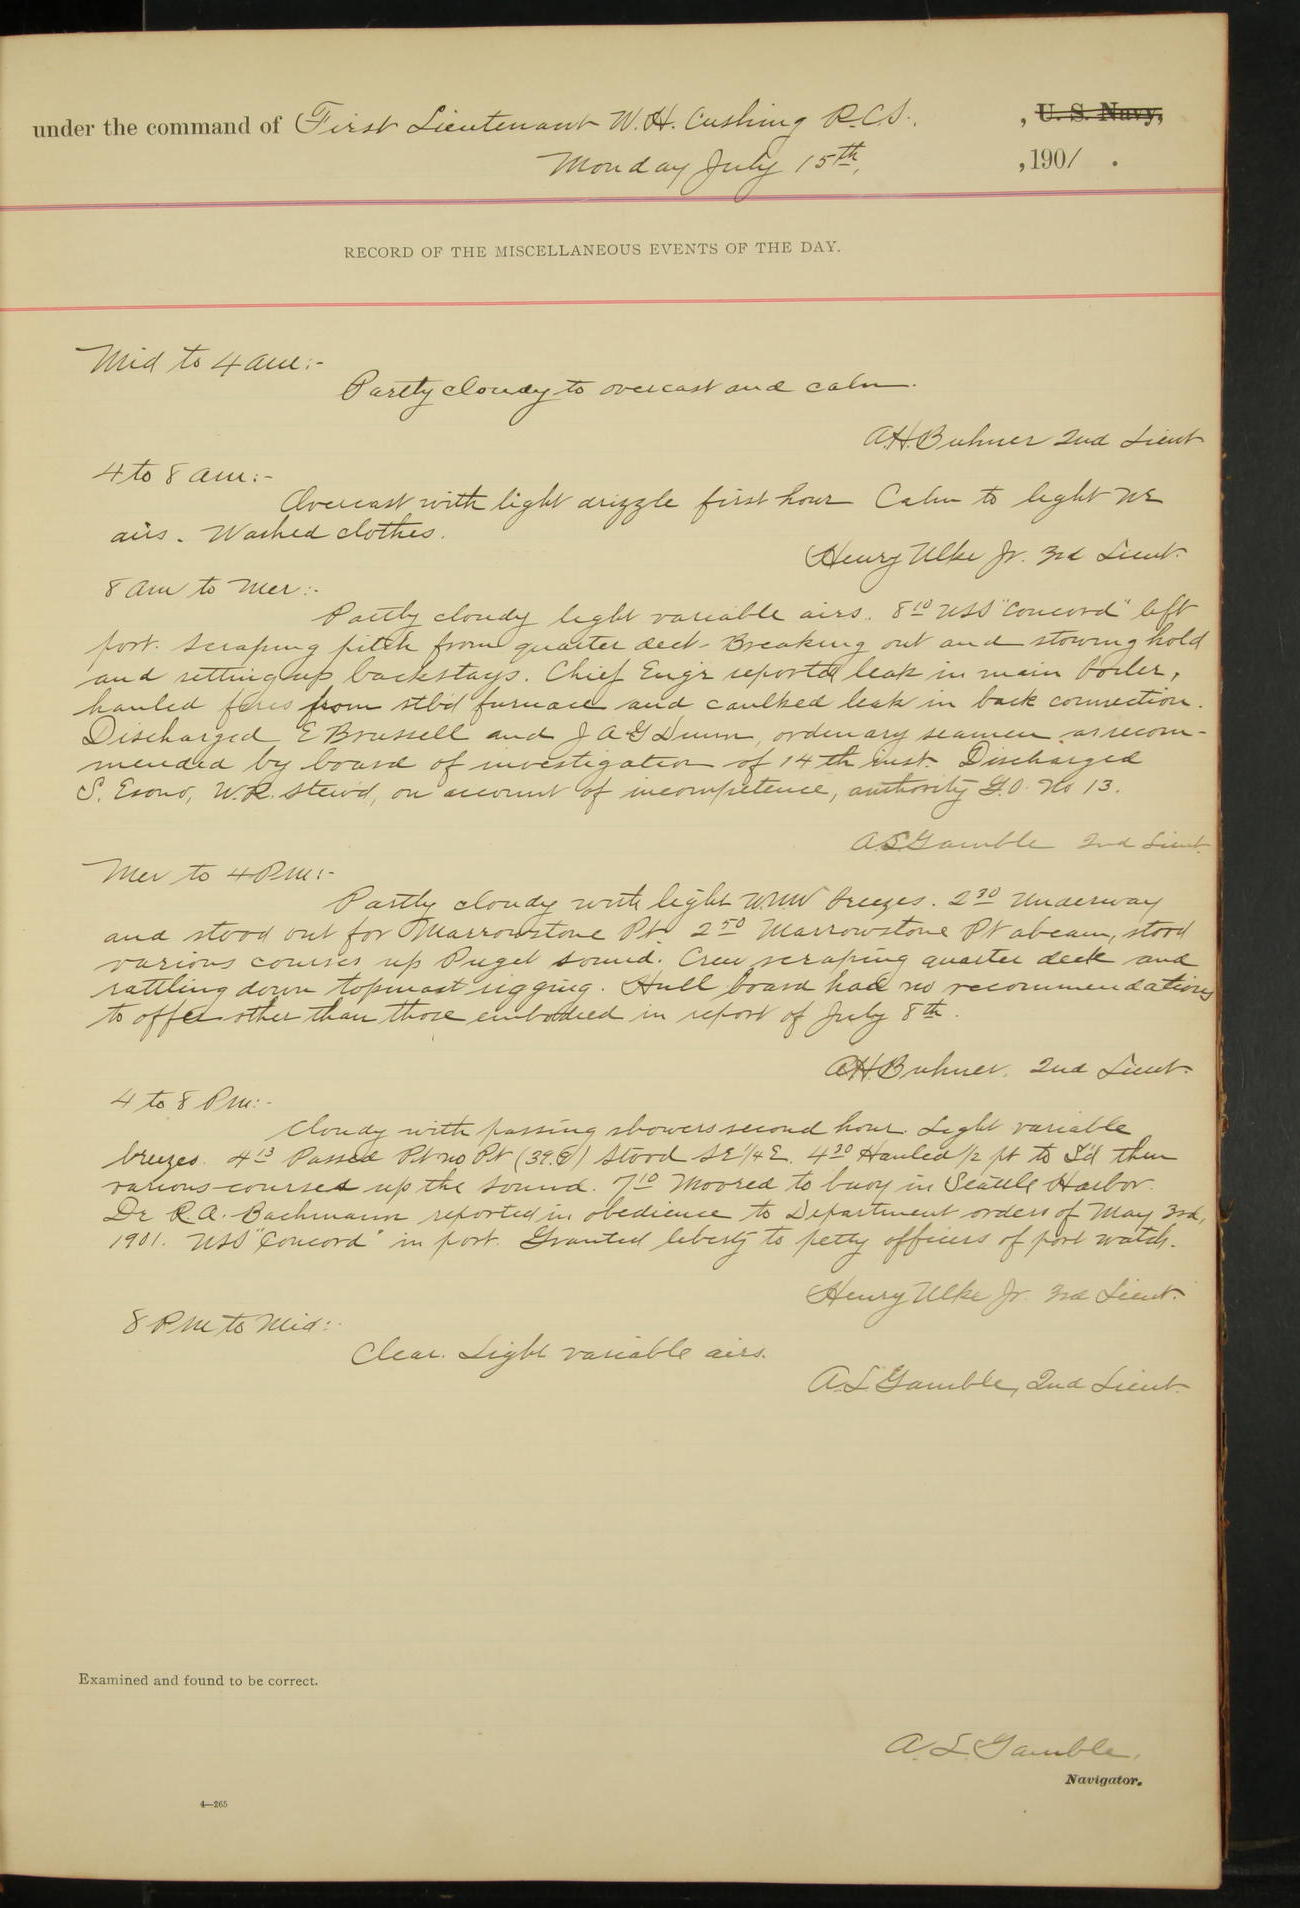 under the command of First Lieutenant W. H. Cushing R.C.S., , U. S. Navy,
Monday July 15th, , 1901 .
RECORD OF THE MISCELLANEOUS EVENTS OF THE DAY.
Mid to 4 am:-
Partly cloudy to overcast and calm.
A.H. Buhner 2nd Lieut
4 to 8 am:-
Overcast with light drizzle first hour Calm to light NE
airs. Washed clothes.
Henry Ulke Jr. 3rd Lieut.
8 am to Mer:-
Partly cloudy light variable airs. 8 10 USS "Concord" left
port. Scraping pitch from quarter deck - Breaking out and stowing hold
and setting up backstays. Chief Engr reported leak in main boiler,
hauled fires from stb'd furnace and caulked leak in back connection.
Discharged E Brussell and J A G Dunn, ordinary seamen as recom-
mended by board of investigation of 14th inst. Discharged
S. Esono, W.R. Stew'd, on account of incompetence, authority G.O. No 13.
A.L Gamble 2nd Lieut.
Mer to 4 PM:-
Partly cloudy with light WNW breezes. 2 30 Underway
and stood out for Marrowstone Pt. 2 50 Marrowstone Pt abeam, stood
various courses up Puget Sound. Crew scraping quarter deck and
rattling down topmast rigging. Hull board had no recommendations
to offer other than those embodied in report of July 8th.
A.H. Buhner. 2nd Lieut.
4 to 8 Pm:-
Cloudy with passing showers second hour. Light variable
breezes. 4 13 Passed Pt no Pt (39.8) Stood SE 1/4 E. 4 20 Hauled 1/2 pt to S'd then
various courses up the Sound. 7 10 Moored to buoy in Seattle Harbor.
Dr R.A. Bachmann reported in obedience to Department orders of May 3rd,
1901. USS "Concord" in port. Granted liberty to petty officers of port watch.
Henry Ulke Jr. 3rd Lieut.
8 PM to Mid:-
Clear. Light variable airs.
A.L Gamble, 2nd Lieut.
Examined and found to be correct.
A. L. Gamble,
Navigator.
4—265